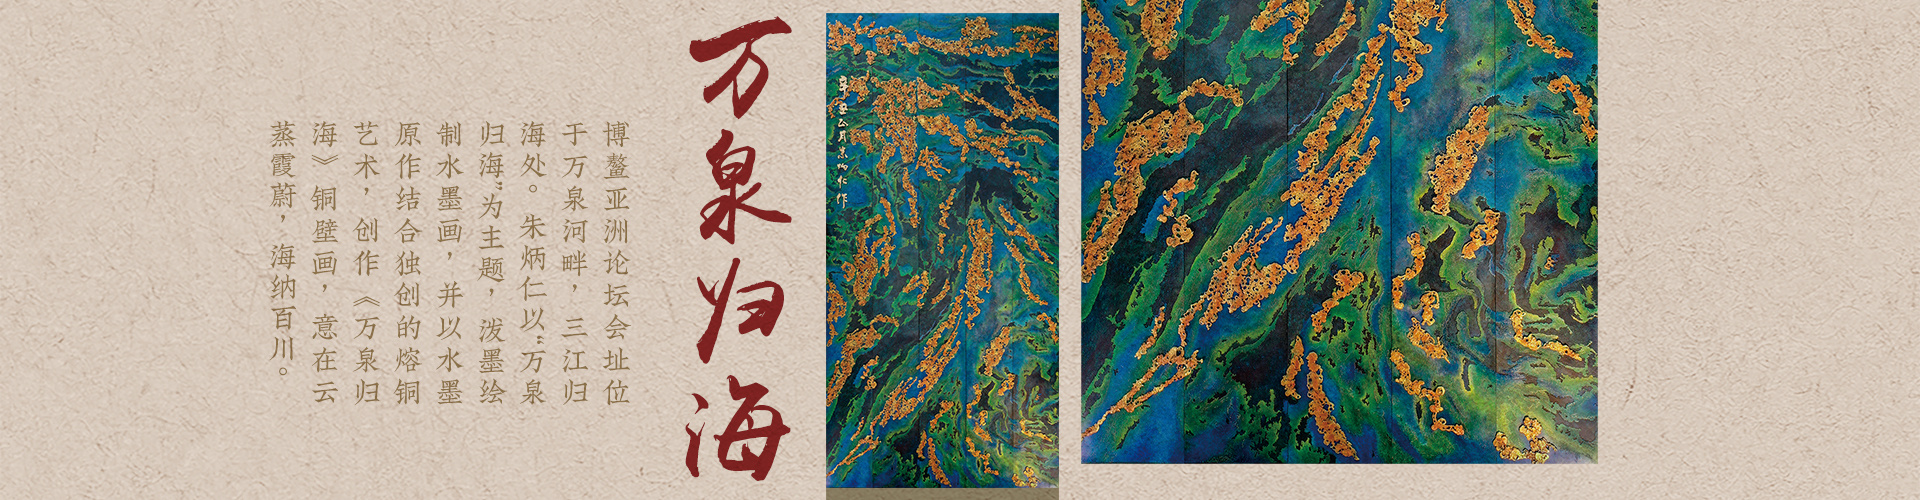 万泉归海
博鳌亚洲论坛会址位
于万泉河畔，三江归
海处。朱炳仁以“万泉
归海”为主题，泼墨绘
制水墨画，并以水墨
原作结合独创的熔铜
艺术，创作《万泉归
海》铜壁画，意在云
蒸霞蔚，海纳百川。